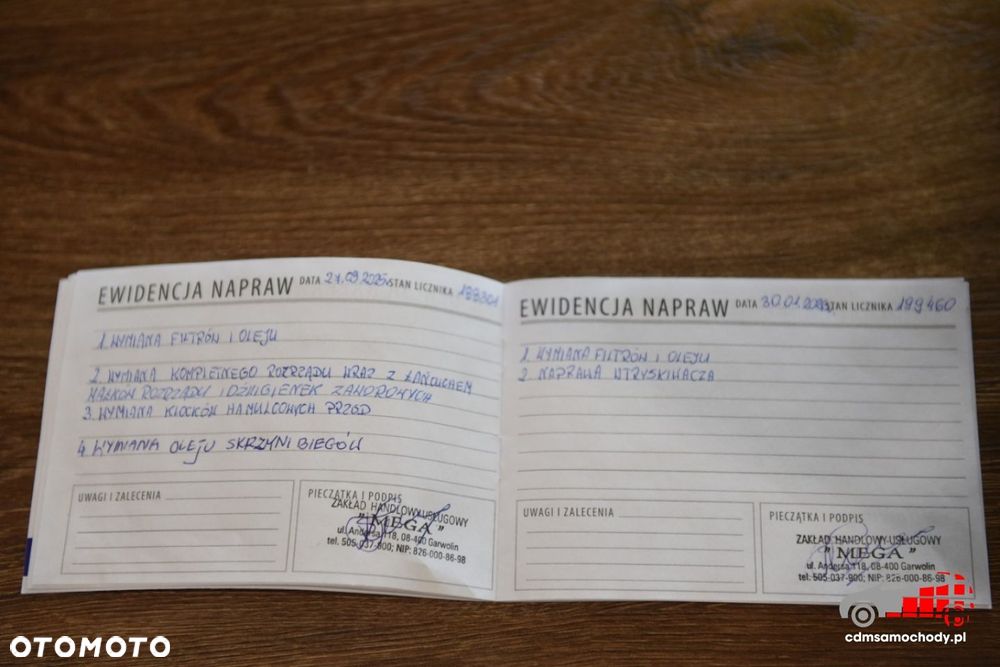 EWIDENCJA NAPRAW DATA 09.2025 STAN LICZNIKA
1. WYMIANA FILTRÓW I OLEJU
2. WYMIANA KOMPLETNEGO ROZRZĄDU WRAZ Z ŁAŃCUCHEM
WAŁKÓW ROZRZĄDU I DŹWIGIENEK ZAWOROWYCH
3. WYMIANA KLOCKÓW HAMULCOWYCH PRZÓD
4. WYMIANA OLEJU SKRZYNI BIEGÓW
UWAGI I ZALECENIA
PIECZĄTKA I PODPIS
ZAKŁAD HANDLOWY-USŁUGOWY
"MEGA"
ul. Andersa 118, 08-400 Garwolin
tel. 505-037-900; NIP: 826-000-86-98
EWIDENCJA NAPRAW DATA 30.01 STAN LICZNIKA 199460
1. WYMIANA FILTRÓW I OLEJU
2. NAPRAWA WTRYSKIWACZA
UWAGI I ZALECENIA
PIECZĄTKA I PODPIS
ZAKŁAD HANDLOWY-USŁUGOWY
"MEGA"
ul. Andersa 118, 08-400 Garwolin
tel. 505-037-900; NIP: 826-000-86-98
OTOMOTO
cdmsamochody.pl